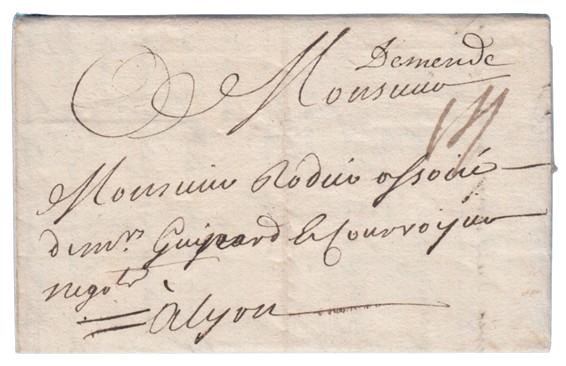 Demende
Monsieur
Monsieur Rodier associé
de mrs Guiyard & Courvoisier
negots
à Lyon